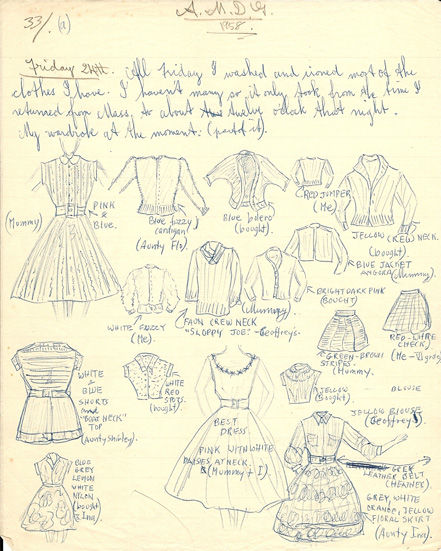 33/. (a)
A.M.D.G.
1958.
Friday 24th. All Friday I washed and ironed most of the
clothes I have. I haven't many so it only took from the time I
returned from Mass, to about twelve o'clock that night.
My wardrobe at the moment: (part of it).
(Mummy)
PINK
&
BLUE.
Blue fuzzy
cardigan
(Aunty Flo)
Blue bolero
(bought).
RED JUMPER
(Me)
YELLOW (RED) NECK.
(bought)
BLUE JACKET
ANGORA (Mummy)
WHITE FUZZY
(Me)
FAUN CREW NECK
"SLOPPY JOE" - Geoffreys.
(Mummy)
BRIGHT DARK PINK
(BOUGHT)
GREEN-BROWN
STRIPES
(Mummy.
RED-WHITE
CHECK
WHITE
&
BLUE
SHORTS
and
"BOAT NECK"
TOP
(Aunty Shirley)
WHITE
RED
SPOTS.
(bought)
BEST
DRESS.
PINK WITH WHITE
DAISIES AT NECK.
(Mummy + I)
YELLOW
(Bought).
BLOUSE
YELLOW BLOUSE
(Geoffreys)
GREY
LEATHER BELT
GREY, WHITE
ORANGE, YELLOW
FLORAL SKIRT
(Aunty Ina)
BLUE
GREY
LEMON
WHITE
NYLON
(bought
& Ina)